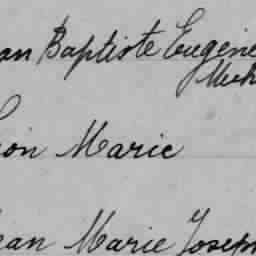 an Baptiste Eugène
Mich
éon Marie
ean Marie Joseph